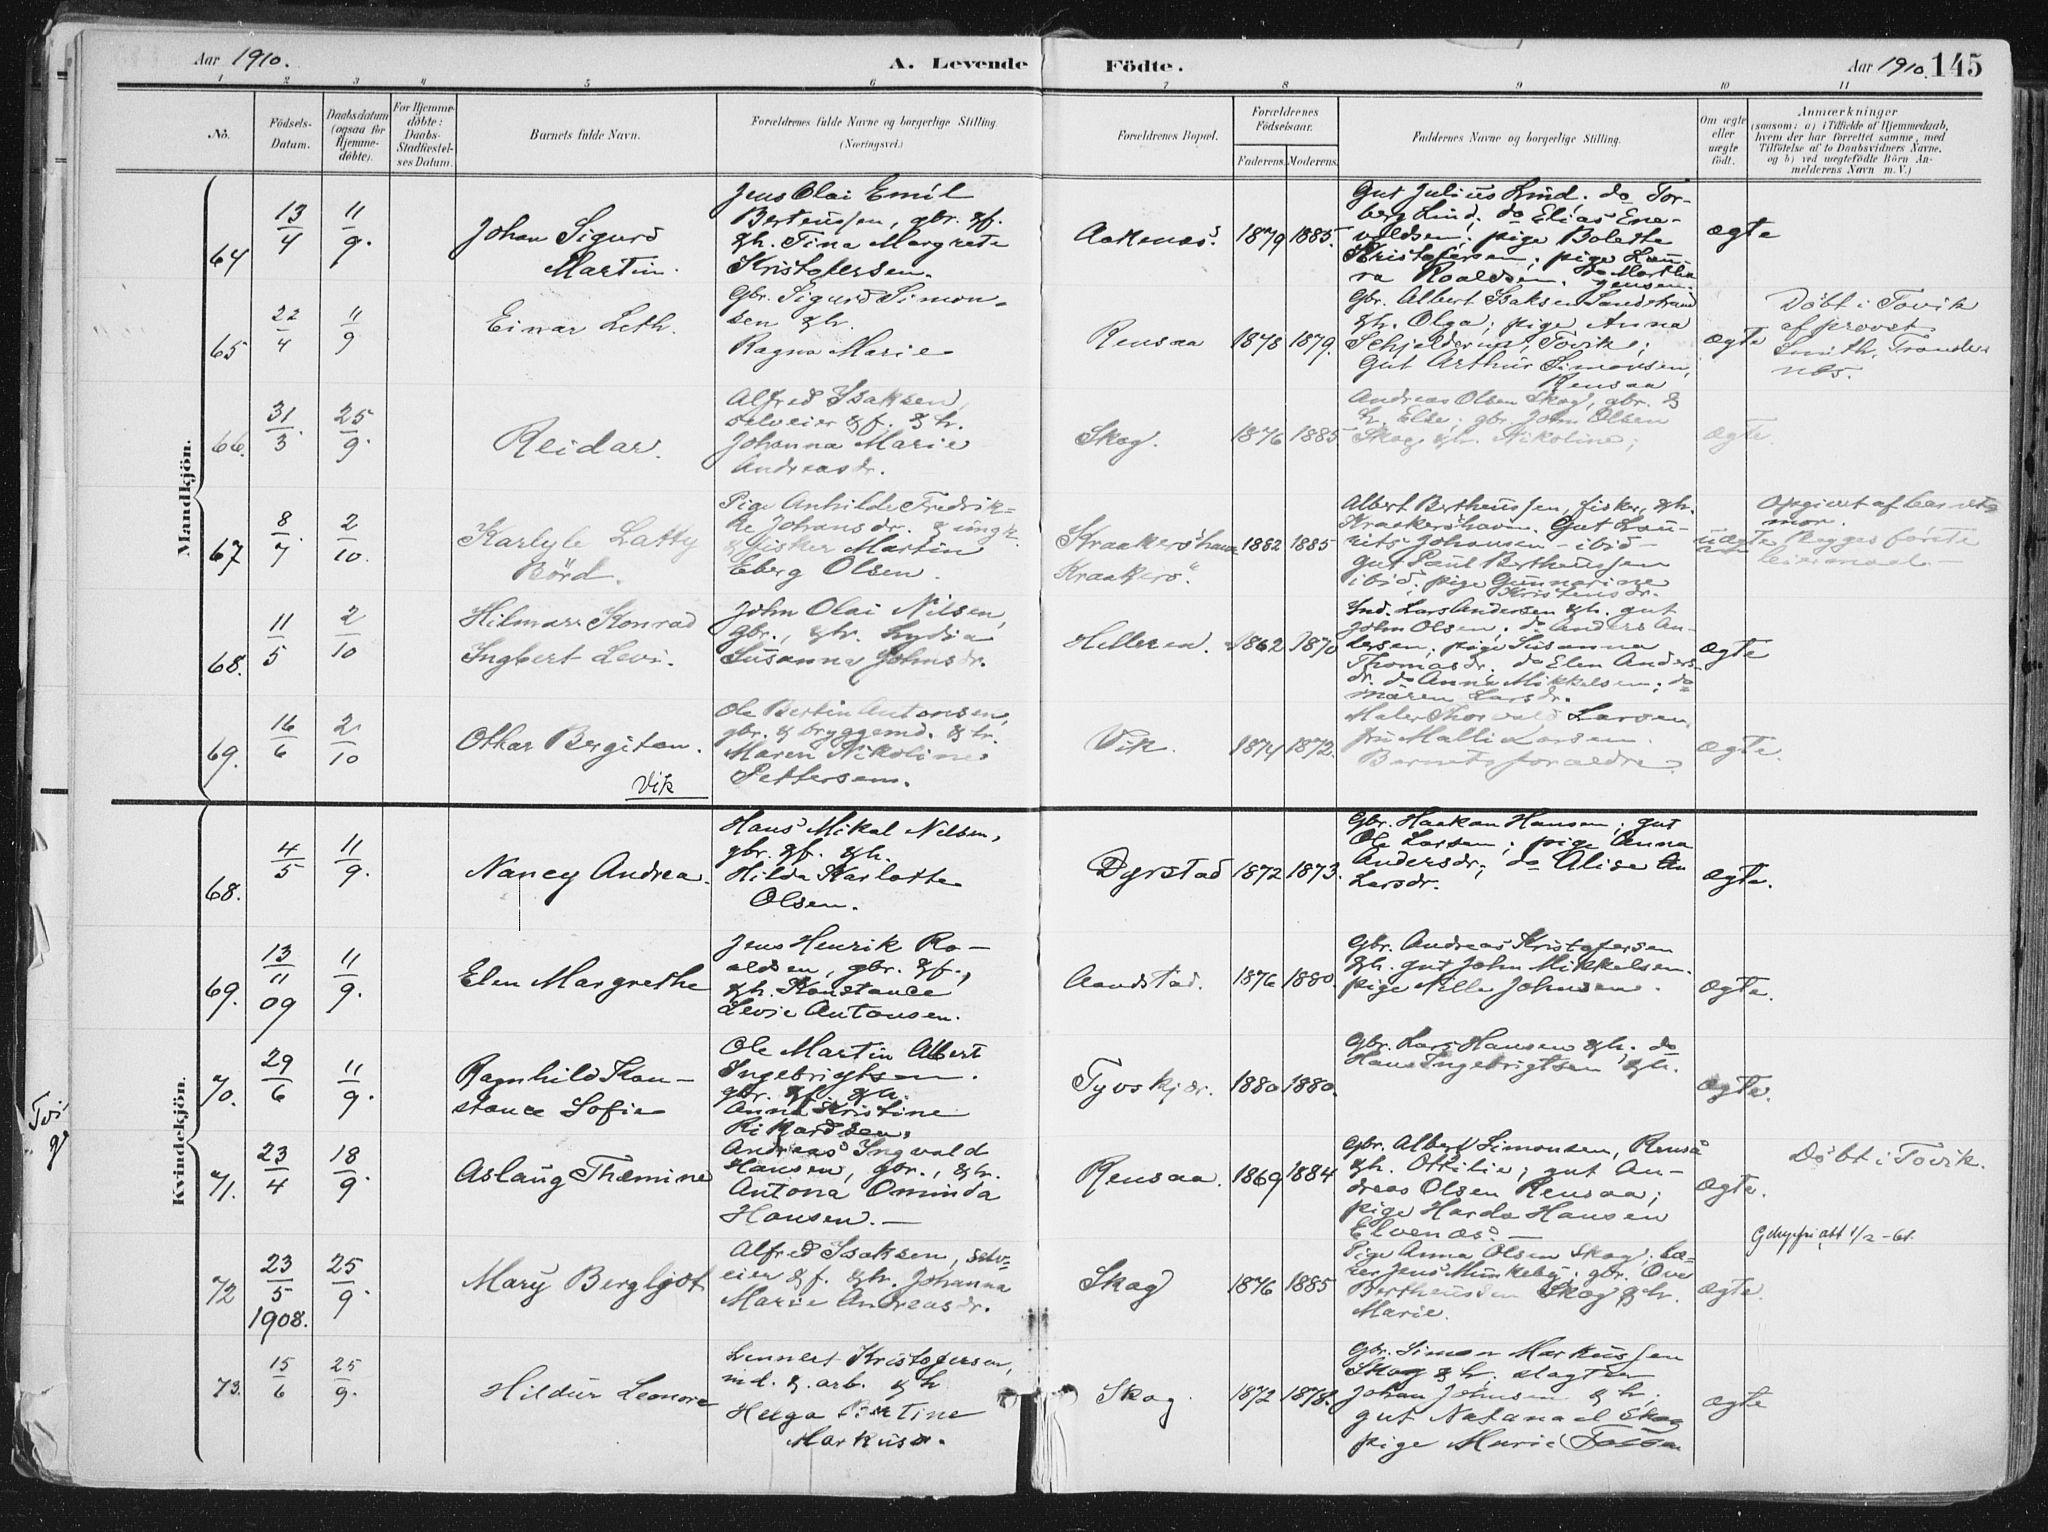 Aar 1910.
A. Levende
Födte.
Aar 1910. 145
1 2 3 4 5 6 7 8 9 10 11
No.
Födsels-
Datum.
Daabsdatum
(ogsaa for
Hjemme-
döbte).
For Hjemme-
döbte:
Daabs-
Stadfæstel-
ses Datum.
Barnets fulde Navn.
Forældrenes fulde Navne og borgerlige Stilling.
(Næringsvei.)
Forældrenes Bopæl.
Forældrenes
Födselsaar.
Faderens. Moderens.
Faddernes Navne og borgerlige Stilling.
Om ægte
eller
uægte
födt.
Anmærkninger
(saasom: a) i Tilfælde af Hjemmedaab,
hvem der har forrettet samme, med
Tilföielse af to Daabsvidners Navne,
og b) ved uegtefödte Börn An-
melderens Navn m. V.)
Mandkjön.
64
13/4
11/9.
Johan Sigurd
Martin.
Jens Olai Emil
Berteussen, gbr. gf.
& h. Tina Margrete
Kristofersen.
1879 1885.
Gut Julius Lind. do Tor-
berg Lind; do Elias Ene-
valdsen; pige Bolette
Kristofersen; pige Lau-
ra Roaldsen. do Martha
Jensen.
ægte
65
22/4
11/9
Einar Leth.
Gbr. Sigurd Simon-
sen & h.
Ragna Marie
Rensaa
1878 1879.
Gbr. Albert Isaksen Sandstrand
& h. Olga; pige Anna
Schjelderup, Tovik;
Gut Arthur Simonsen,
Rensaa
ægte
Döbt i Tovik
af provst
Smith, Tronde-
nes.
66.
31/3.
25/9.
Reidar.
Alfred Isaksen,
selveier & f. & h.
Johanna Marie
Andreasdr.
Skog.
1876 1885
Andreas Olsen Skog, gbr. &
h. Else; gbr John Olsen
Skog & h. Nikoline;
ægte.
67
8/7
2/10.
Karlyle Latty
Börd.
Pige Anhilde Fredrik-
ke Johansdr. & ungk.
& fisker Martin
Eberg Olsen.
Kraakeröhavn
Kraakerö.
1882 1885
Albert Bertheussen, fisker, & h.
Kraakeröhavn. Gut Lau-
rits Johansen - ibid -
gut Paul Bertheussen
ibid; pige Gunnarine
Kristensdr.
uægte
Opgivet af barnets
mor.
Begges förste
leiermaal. -
68.
11/5
2/10
Hilmar Konrad
Ingbert Levi.
John Olai Nilsen,
gbr., & h. Lydia
Susanna Johnsdr.
Helleren.
1862 1870
Ind. Lars Andersen & h. gut
John Olsen; do Anders An-
dersen; pige Susanna
Thomasdr. do Elen Anders-
dr. do Anna Mikkelsen; do
Maren Larsdr.
ægte
69.
16/6
2/10
Othar Bergiton.
Vik
Ole Bertin Antonsen,
gbr. & bryggemd. & h.
Maren Nikoline
Pettersen.
Vik.
1874 1872.
Maler Thorvald Larsen,
fru Malli Larsen.
Barnets foraldre.
ægte.
Kvindekjön.
68.
4/5
11/9.
Nancy Andrea.
Hans Mikal Nilsen,
gbr. gf. & h.
Hilda Karlotte
Olsen.
Dyrstad
1872 1873.
Gbr. Haakan Hansen; gut
Ole Larsen; pige Anna
Andersdr; do Alise
Larsdr.
ægte.
69.
13/11
09
11/9.
Elen Margrethe
Jens Henrik Ro-
aldsen, gbr. & f.,
& h. Konstance
Levie Antonsen.
Aandstad.
1876 1880.
Gbr. Andreas Kristofersen
& h. gut John Mikkelsen.
pige Nille Johnsen.
ægte.
70.
29/6
11/9.
Ragnhild Kon-
stance Sofie
Ole Martin Albert
Ingebrigtsen.
gbr. & f. & h.
Anna Kristine
Rikardsen.
Tyvskjær.
1880 1880.
Gbr. Lars Hansen & h. do
Hans Ingebrigtsen & h.
ægte.
71.
23/4
18/9.
Aslaug Thæmine
Andreas Ingvald
Hansen, gbr., & h.
Antona Ominda
Hansen. -
Rensaa.
1869 1884
Gbr. Albert Simonsen, Renså
& h. Ottilie; gut An-
dreas Olsen Rensaa;
pige Harda Hansen
Elvenes. -
ægte.
Döbt i Tovik.
72
23/5
1908.
25/9.
Mary Bergljot
Alfred Isaksen, selv-
eier & f. & h. Johanna
Marie Andreasdr.
Skog
1876 1885
Pige Anna Olsen Skog; læ-
rer Jens Munkeby; gbr. Ove
Bertheussen Skog & h.
Marie.
ægte.
73.
15/6
25/9.
Hildur Leonore
Lennert Kristofersen,
md. & arb. & h
Helga Bertine
Markusd.
Skog
1872 1878.
Gbr. Simon Markussen
Skog & h. slagter
Johan Johnsen & h;
gut Natanael Skog
pige Marie
ægte